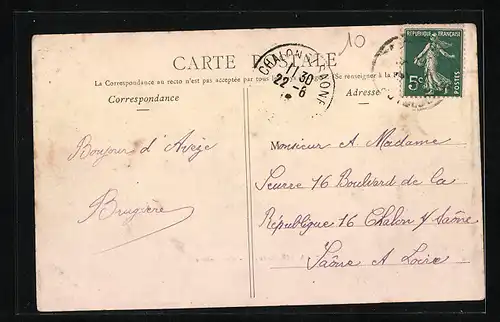 10
CARTE POSTALE
REPUBLIQUE FRANÇAISE
5c
POSTES
CHALON S SAONE
11 30
22 - 6
La Correspondance au recto n'est pas acceptée par tous
Se renseigner à la
Correspondance
Adresse
Bonjour d'Avèze
Bruguère
Monsieur et Madame
Seurre 16 Boulvard de la
République 16 Chalon s/ Saône
Saône et Loire